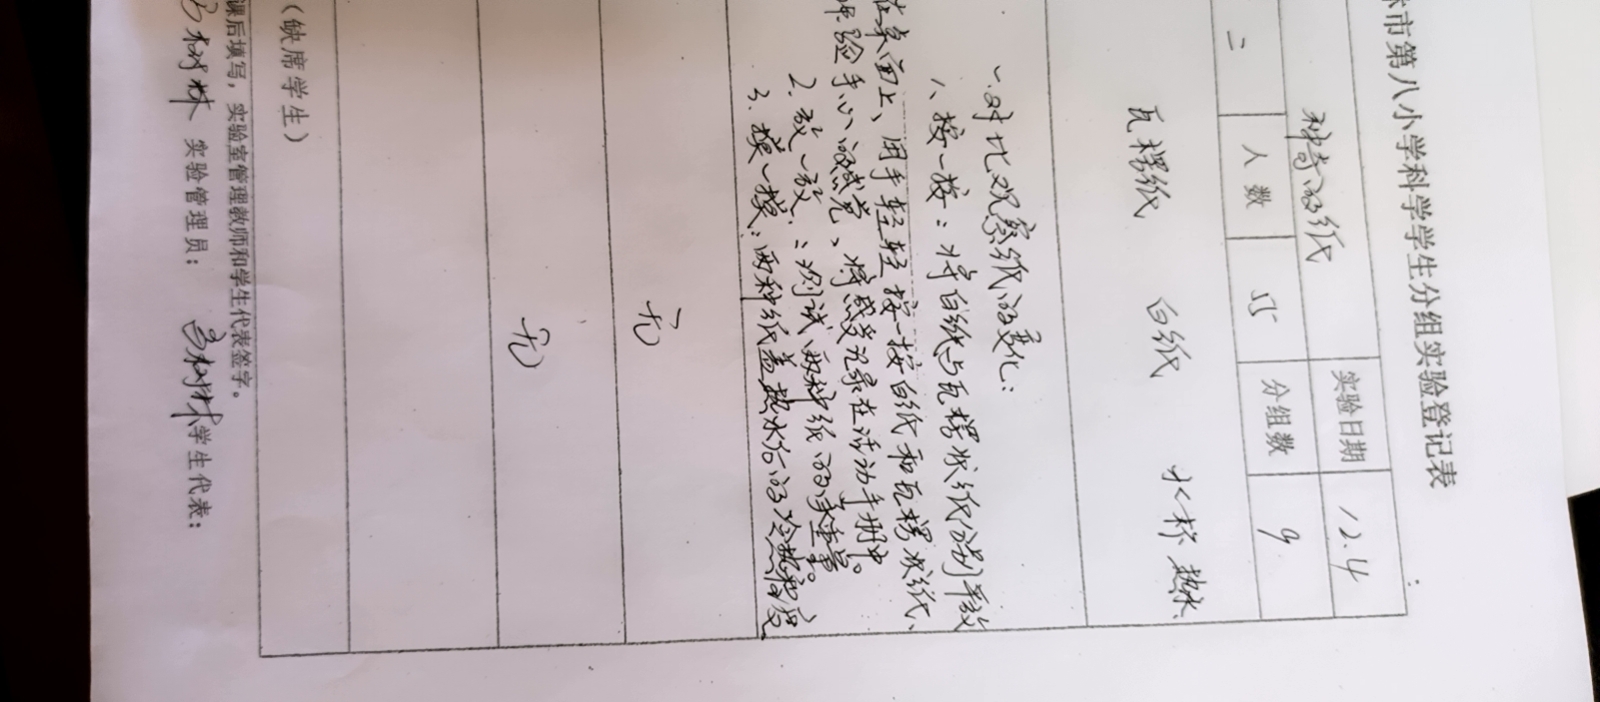 林市第八小学科学学生分组实验登记表
神奇的纸 实验日期 12.4
二 人数 55 分组数 9
瓦楞纸 白纸 水杯 热水
一、对比观察纸的变化：
1、按一按：将白纸与瓦楞状纸分别平放
在桌面上、用手轻轻按一按白纸和瓦楞状纸、
体验手心的感觉、将感受记录在活动手册中。
2、放一放：测试两种纸的承重量。
3、摸一摸：两种纸盖热水后的冷热程度
无
无
（缺席学生）
课后填写，实验室管理教师和学生代表签字。
实验管理员： 学生代表：